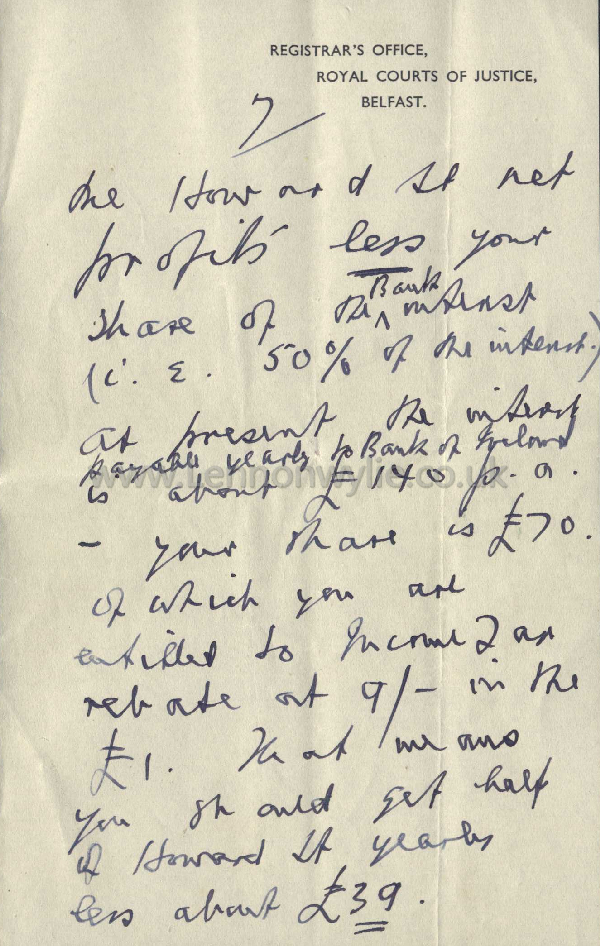 REGISTRAR'S OFFICE,
ROYAL COURTS OF JUSTICE,
BELFAST.
7
the Howard St net
profits less your
share of the Bank interest
(i.e. 50% of the interest.)
At present the interest
payable yearly to Bank of Ireland
www.Lennonwylie.co.uk
is about £140 p.a.
- your share is £70.
of which you are
entitled to Income Tax
rebate at 9/- in the
£1. That means
you should get half
of Howard St yearly
less about £39.